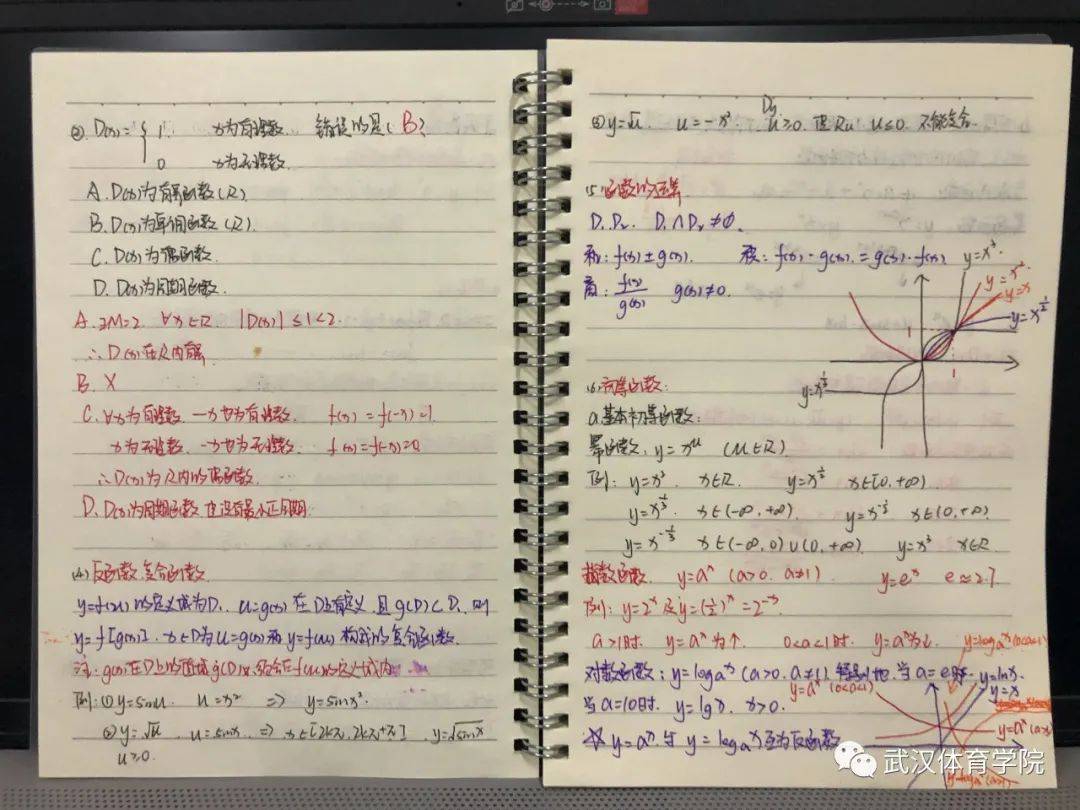 ② D(x)= { 1 x为有理数 错误的是( B )
0 x为无理数
A. D(x)为有界函数(R)
B. D(x)为单调函数(R)
C. D(x)为偶函数
D. D(x)为周期函数
A. ∃M=2 ∀x∈R |D(x)|≤1<2
∴D(x)在R内有界
B. X
C. ∀x为有理数 -x也为有理数 f(x)=f(-x)=1
x为无理数 -x也为无理数 f(x)=f(-x)=0
∴D(x)为R内的偶函数
D. D(x)为周期函数 但没有最小正周期
(4) 反函数 复合函数
y=f(u)的定义域为D₁ u=g(x)在D上有定义 且g(D)⊂D₁ 则
y=f[g(x)], x∈D为u=g(x)和y=f(u)构成的复合函数
注: g(x)在D上的值域g(D)必须含在f(u)的定义域内
例: ① y=sinu u=x² => y=sinx²
② y=√u u=sinx => x∈[2kπ, 2kπ+π] y=√sinx
u≥0
Dy
③ y=√u u=-x² u≥0 但Ru u≤0 不能复合
(5) 函数的运算
D₁ D₂ D₁∩D₂≠∅
和: f(x)±g(x) 积: f(x)·g(x)=g(x)·f(x)
商: f(x)/g(x) g(x)≠0
y=x³
y=x²
y=x
y=x^(1/2)
1
1
y=x^(1/3)
(6) 初等函数:
a.基本初等函数:
幂函数: y=x^u (u∈R)
例: y=x² x∈R y=x^(1/2) x∈[0,+∞)
y=x^(1/3) x∈(-∞,+∞) y=x^(-1/2) x∈(0,+∞)
y=x^(-1/3) x∈(-∞,0)∪(0,+∞) y=x³ x∈R
指数函数 y=aˣ (a>0 a≠1) y=eˣ e≈2.7
例: y=2ˣ 及 y=(1/2)ˣ=2⁻ˣ
a>1时 y=aˣ为↑ 0<a<1时 y=aˣ为↓
y=logaˣ(0<a<1)
对数函数: y=logaˣ (a>0 a≠1) 特别地 当a=e时 y=lnx
y=aˣ (0<a<1)
y=x
当a=10时 y=lgx x>0
y=aˣ(a>1)
☆ y=aˣ 与 y=logaˣ互为反函数
y=logaˣ(a>1)
武汉体育学院